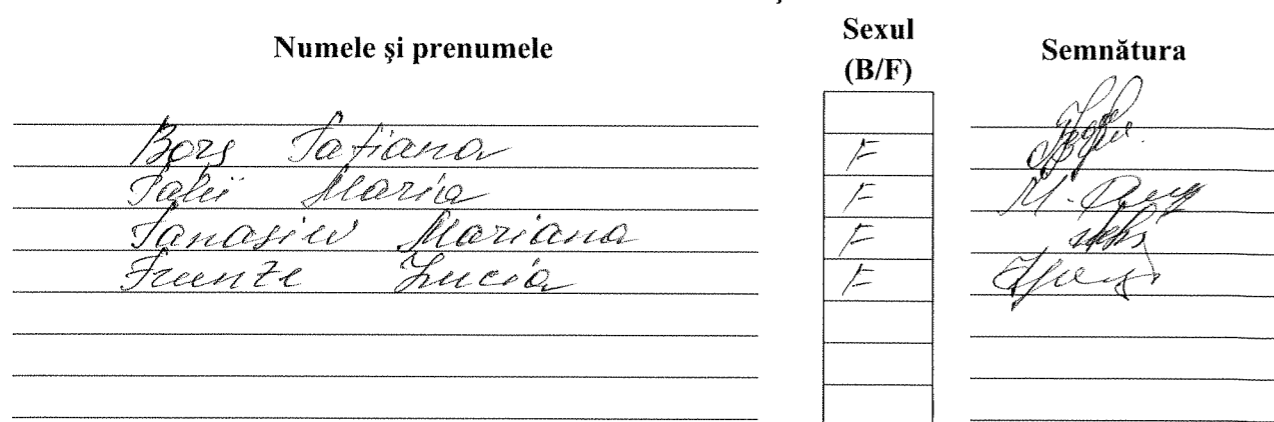 Numele şi prenumele Sexul (B/F) Semnătura
Borş Tatiana F
Palii Maria F M.
Tanasiev Mariana F
Frunze Lucia F